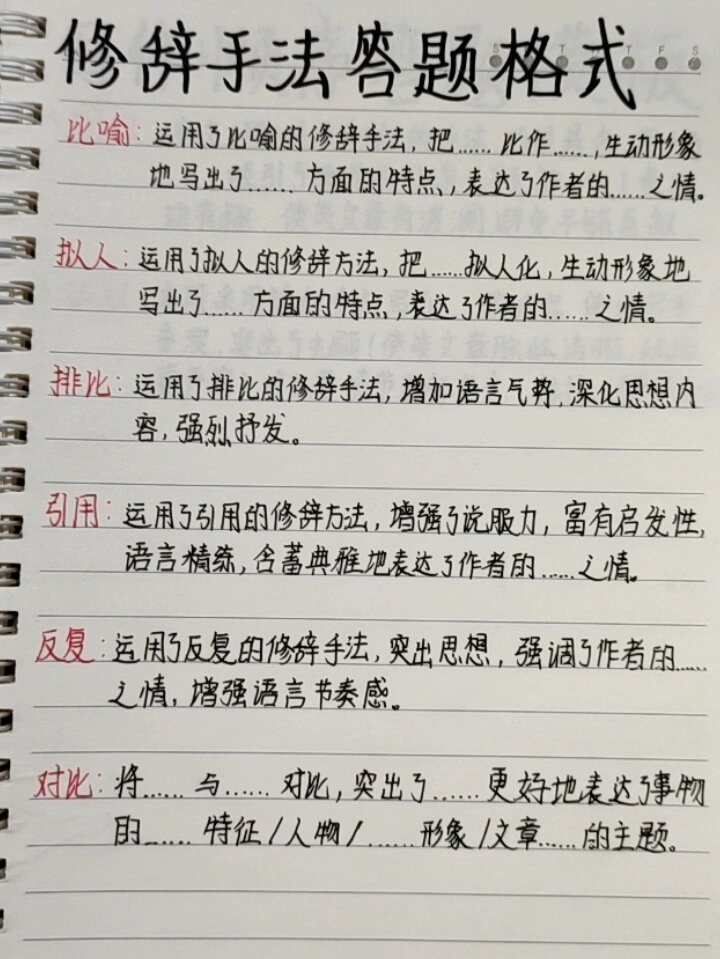 修辞手法答题格式
比喻：运用了比喻的修辞手法，把……比作……，生动形象
地写出了……方面的特点，表达了作者的……之情。
拟人：运用了拟人的修辞方法，把……拟人化，生动形象地
写出了……方面的特点，表达了作者的……之情。
排比：运用了排比的修辞手法，增加语言气势，深化思想内
容，强烈抒发。
引用：运用了引用的修辞方法，增强了说服力，富有启发性，
语言精练，含蓄典雅地表达了作者的……之情。
反复：运用了反复的修辞手法，突出思想，强调了作者的……
之情，增强语言节奏感。
对比：将……与……对比，突出了……更好地表达了事物
的……特征/人物/……形象/文章……的主题。